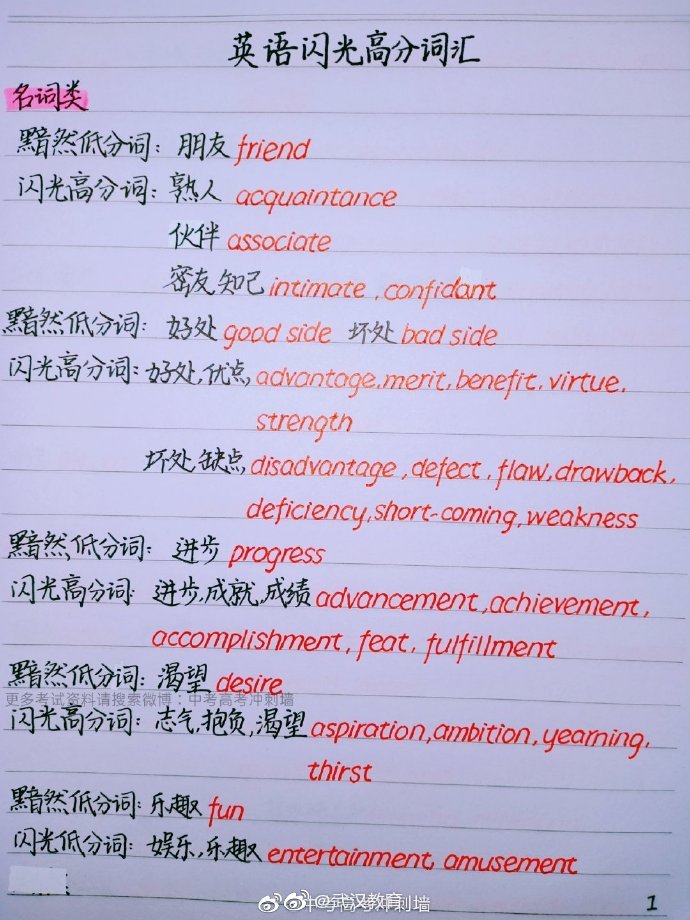 英语闪光高分词汇
名词类
黯然低分词：朋友 friend
闪光高分词：熟人 acquaintance
伙伴 associate
密友 知己 intimate, confidant
黯然低分词：好处 good side 坏处 bad side
闪光高分词：好处，优点，advantage, merit, benefit, virtue,
strength
坏处，缺点，disadvantage, defect, flaw, drawback,
deficiency, short-coming, weakness
黯然低分词：进步 progress
闪光高分词：进步，成就，成绩 advancement, achievement,
accomplishment, feat, fulfillment
黯然低分词：渴望 desire
更多考试资料请搜索微博：中考高考冲刺墙
闪光高分词：志气，抱负，渴望 aspiration, ambition, yearning,
thirst
黯然低分词：乐趣 fun
闪光低分词：娱乐，乐趣 entertainment, amusement
@武汉教育
中考高考冲刺墙
1